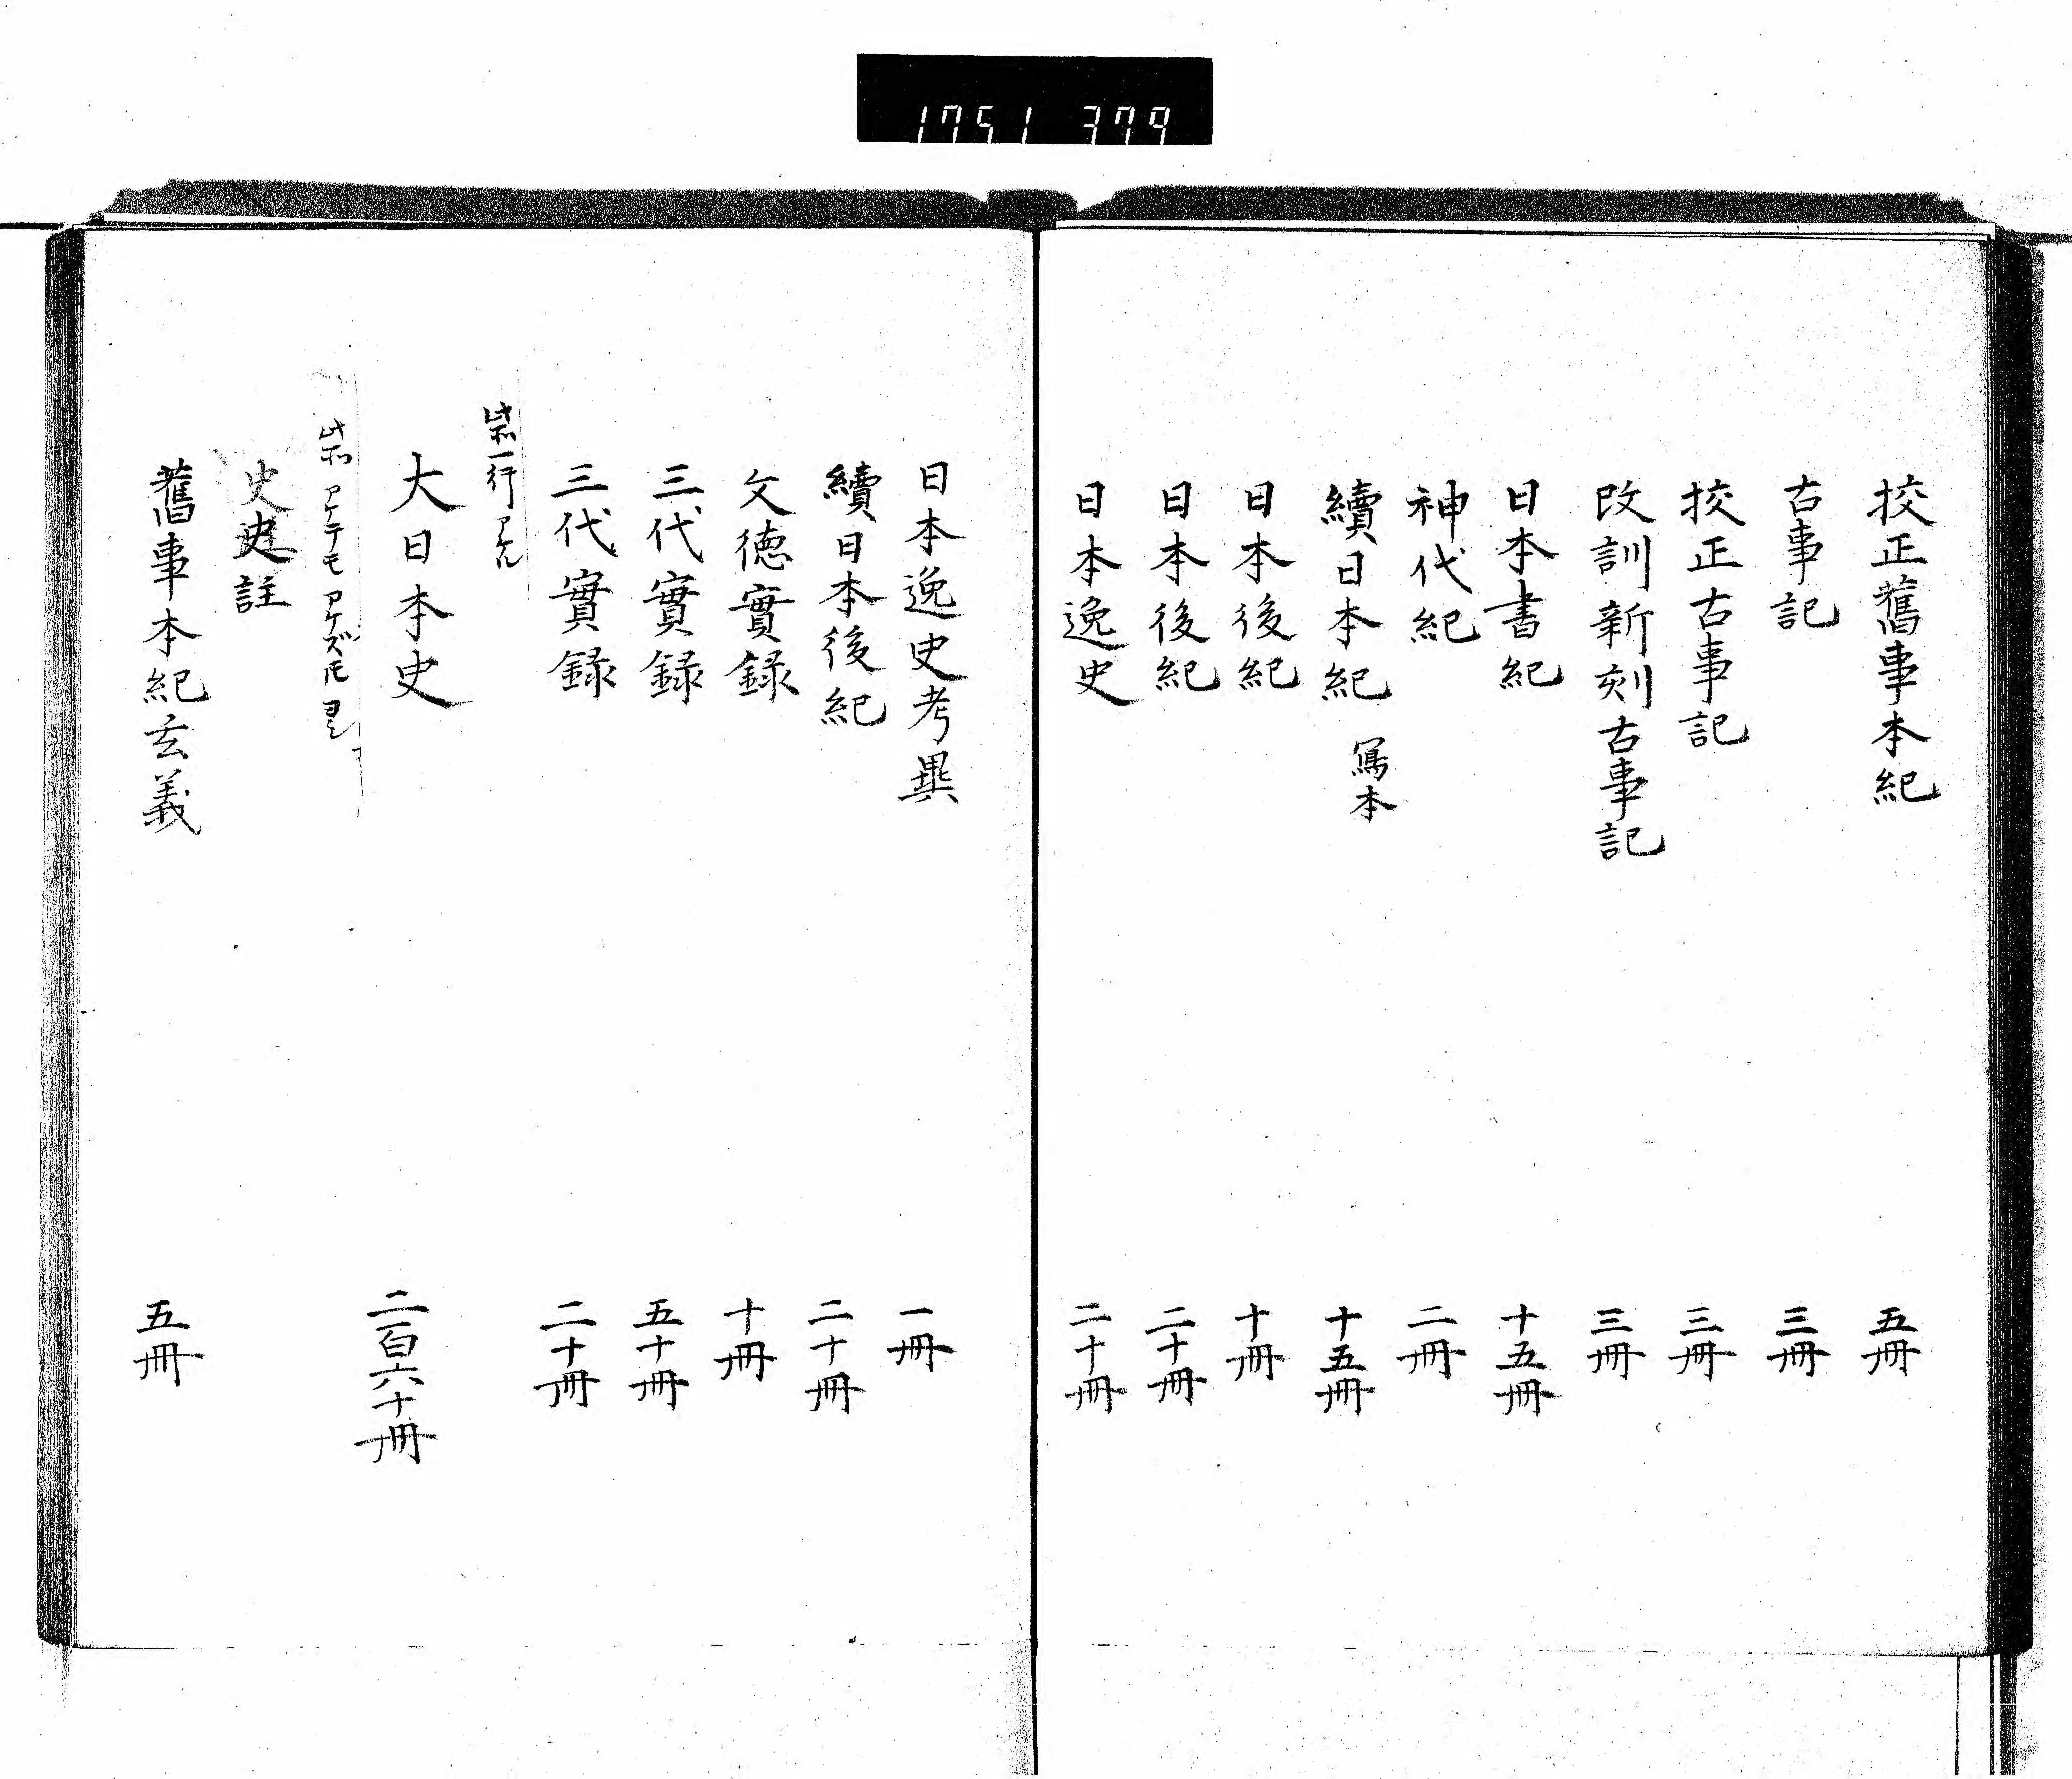 1751 379
挍正舊事本紀 五冊
古事記 三冊
挍正古事記 三冊
改訓新刻古事記 三冊
日本書紀 十五冊
神代紀 二冊
續日本紀 寫本 十五冊
日本後紀 十冊
日本後紀 二十冊
日本逸史 二十冊
日本逸史考異 一冊
續日本後紀 二十冊
文徳實録 十冊
三代實録 五十冊
三代實録 二十冊
一行アケル
大日本史 二百六十冊
アケテモアケズトモヨシ
史註
舊事本紀玄義 五冊